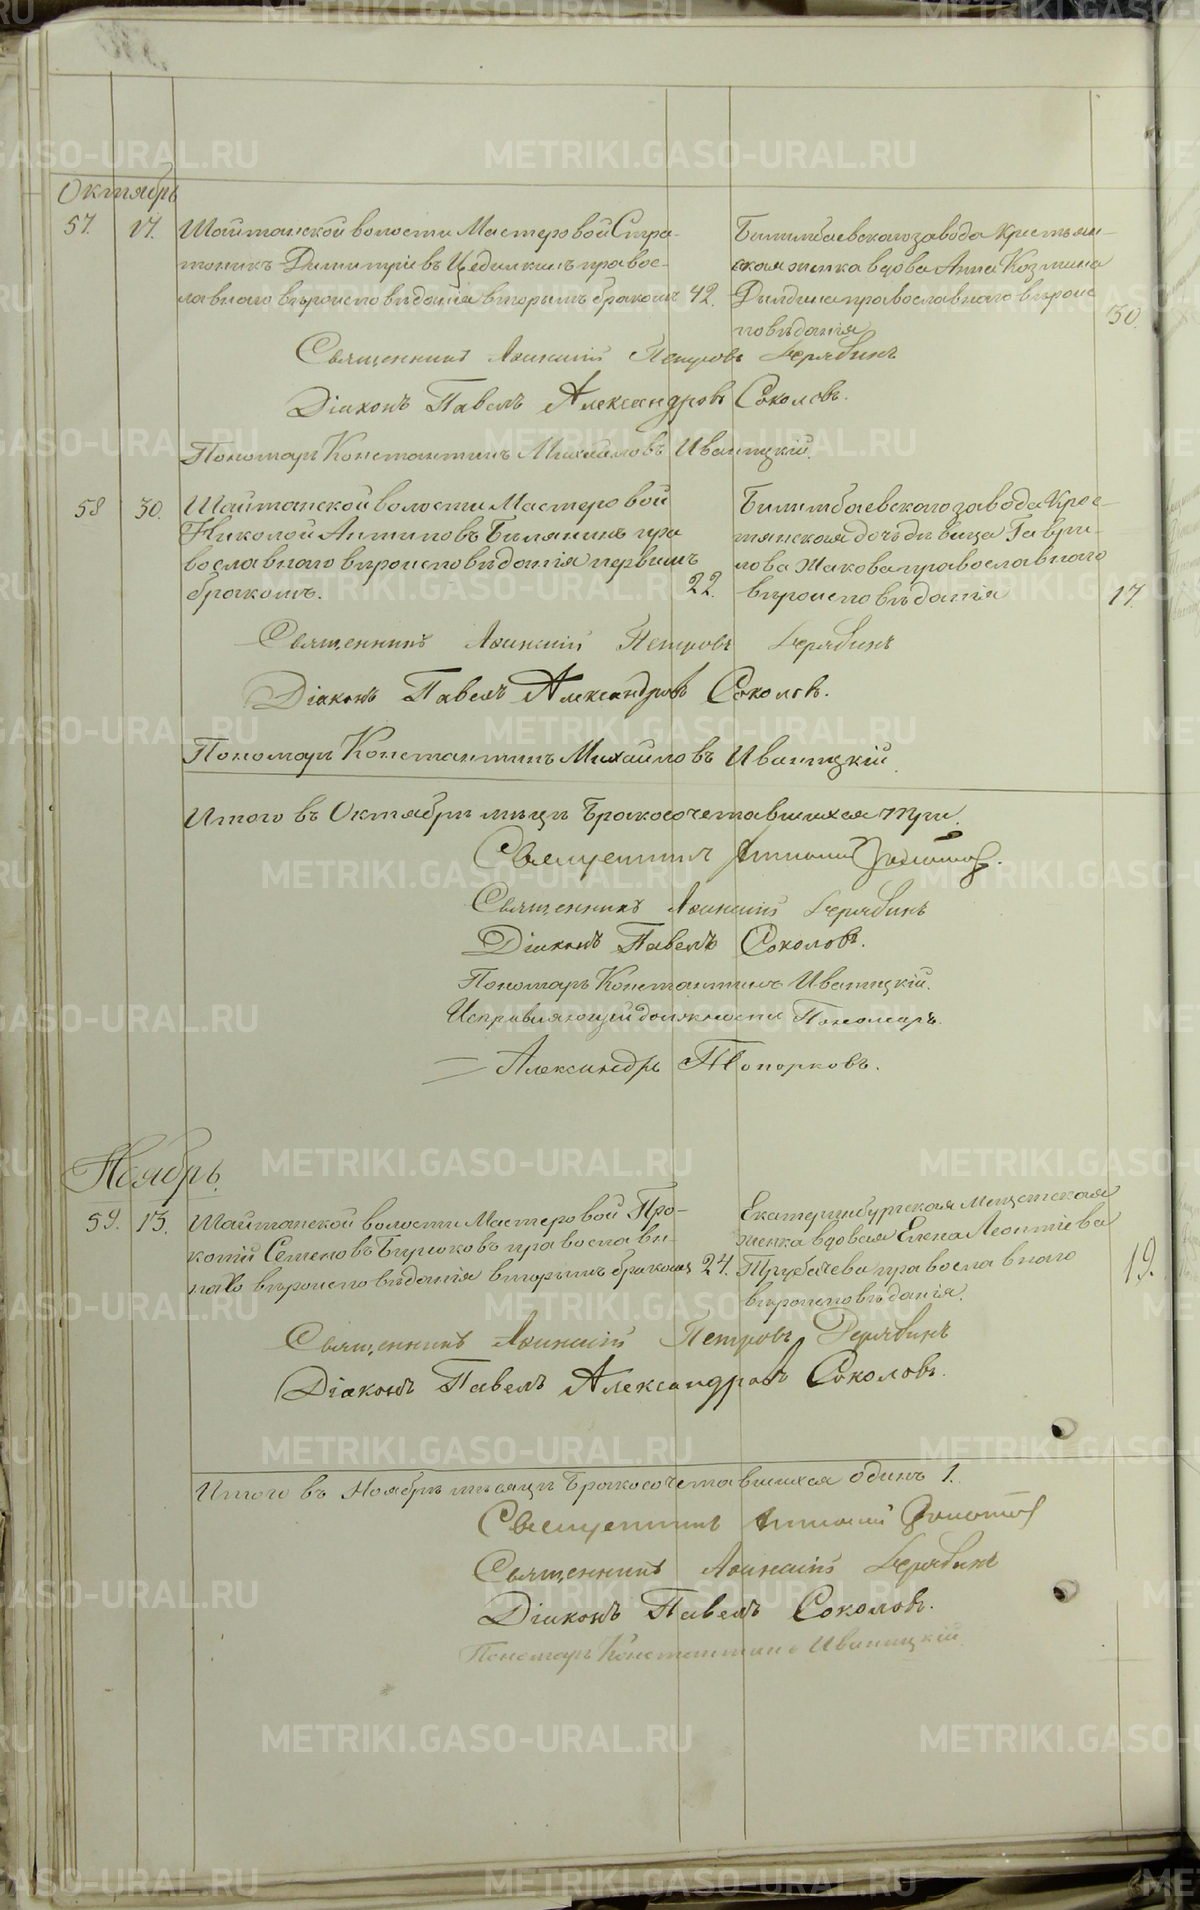 Октябрь
57. 17. Шайтанской волости Мастеровой Стра-
тоникъ Димитріевъ Цедилкинъ правос-
лавнаго вѣроисповѣданія вторымъ бракомъ 42.
Билимбаевскаго завода Крестьян-
ская жинка вдова Анна Козмина
Дылдина православнаго вѣроис
повѣданія 30.
Священникъ Петровъ Дерябинъ
Діаконъ Павелъ Александровъ Соколовъ.
Пономарь Константинъ Михайловъ Иваницкій.
58 30. Шайтанской волости Мастеровой
Николой Антиповъ Билянинъ пра
вославнаго вѣроисповѣданія первымъ
бракомъ. 22.
Билимбаевскаго завода Крес-
тянская дочь дѣвица Гаври-
лова Жакова православнаго
вѣроисповѣданія 17.
Священникъ Петровъ Дерябинъ
Діаконъ Павелъ Александровъ Соколовъ.
Пономарь Константинъ Михайловъ Иваницкій.
Итого въ Октябрѣ мѣцѣ Бракосочетавшихся три.
Священникъ
Священникъ Дерябинъ
Діаконъ Павелъ Соколовъ.
Пономарь Константинъ Иваницкій.
Исправляющій должности Пономаря.
Александръ Топорковъ.
Ноябрь.
59. 13. Шайтанской волости Мастеровой Про-
копій Семеновъ Бирюковъ православн-
наго вѣроисповѣданія вторымъ бракомъ 24.
Екатеринбургская Мещанская
жинка вдовая Елена Леонтіева
Трубачева православнаго
вѣроисповѣданія. 19.
Священникъ Петровъ Дерябинъ
Діаконъ Павелъ Александровъ Соколовъ.
Итого въ Ноябрѣ мѣсяцѣ Бракосочетавшихся одинъ 1.
Священникъ
Священникъ Дерябинъ
Діаконъ Павелъ Соколовъ.
Пономарь Константинъ Иваницкій
METRIKI.GASO-URAL.RU